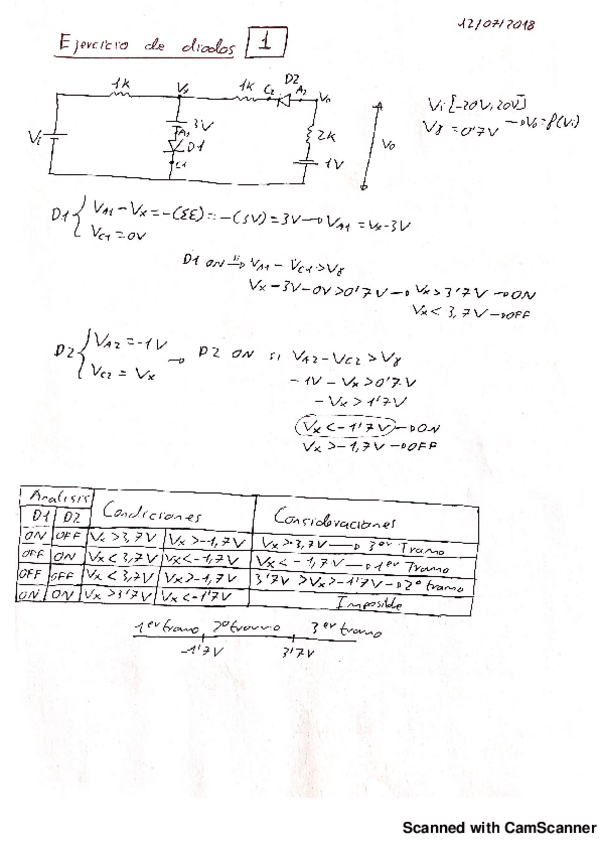 12/07/2018
Ejercicio de diodos 1
1k Vx 1k C2 D2 A2 Vo
Vi 3V A1 D1 C1 2k 1V Vo
Vi [-20V, 20V]
Vγ = 0'7V → Vo = f(Vi)
D1 { VA1 - Vx = -(ΣE) = -(3V) = 3V → VA1 = Vx - 3V
VC1 = 0V
D1 ON si VA1 - VC1 > Vγ
Vx - 3V - 0V > 0'7V → Vx > 3'7V → ON
Vx < 3,7V → OFF
D2 { VA2 = -1V
VC2 = Vx → D2 ON si VA2 - VC2 > Vγ
-1V - Vx > 0'7V
- Vx > 1'7V
Vx < -1'7V → ON
Vx > -1,7V → OFF
Analisis
D1 D2 Condiciones Consideraciones
ON OFF Vx > 3,7V Vx > -1,7V Vx > 3,7V → 3er Tramo
OFF ON Vx < 3,7V Vx < -1,7V Vx < -1,7V → 1er Tramo
OFF OFF Vx < 3,7V Vx > -1,7V 3'7V > Vx > -1'7V → 2º tramo
ON ON Vx > 3'7V Vx < -1'7V Imposible
1er tramo 2º tramo 3er tramo
-1'7V 3'7V
Scanned with CamScanner